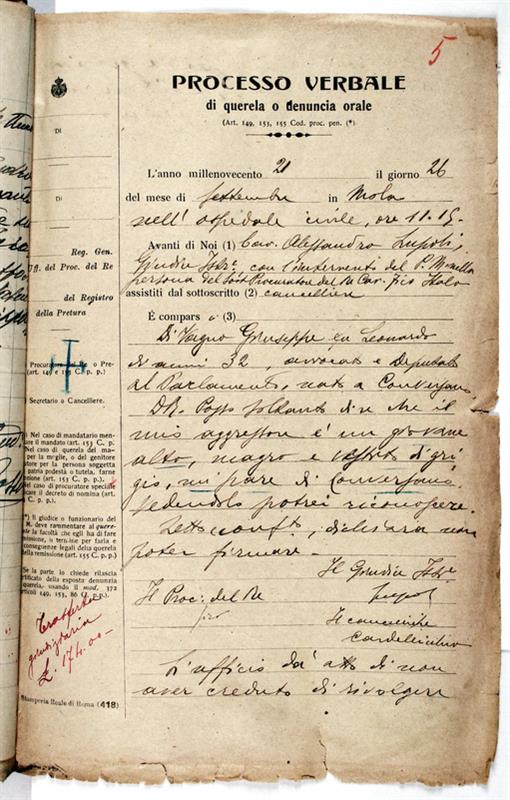 5
PROCESSO VERBALE
di querela o denuncia orale
(Art. 149, 153, 155 Cod. proc. pen. (*)
L'anno millenovecento 21 il giorno 26
del mese di Settembre in Mola
nell'ospedale civile, ore 11.15
Avanti di Noi (1) Cav. Alessandro Lupoli,
Giudice Istr.e con l'intervento del P. M. nella
persona del Procuratore del Re Cav. Italo
assistiti dal sottoscritto (2) cancelliere
È comparso (3)
Di Vagno Giuseppe fu Leonardo
di anni 32, avvocato e Deputato
al Parlamento, nato a Conversano
DR. Posso soltanto dire che il
mio aggressore è un giovane
alto, magro e vestito di gri-
gio, mi pare di Conversano.
Vedendolo potrei riconoscere.
Letto conf.to, dichiara non
poter firmare -
Il Giudice Istr.e
Il Proc. del Re Lupoli
Il cancelliere
L'ufficio dà atto di non
aver creduto di rivolgere
DI
DI
Reg. Gen.
Uff. del Proc. del Re
del Registro
della Pretura
Procuratore del Re o Pre-
(art. 149 e 153 C. p. p.)
) Segretario o Cancelliere.
) Nel caso di mandatario men-
re il mandato (art. 153 C. p.
Nel caso di querela del ma-
per la moglie, o del genitore
tutore per la persona soggetta
patria podestà o tutela, farne
zione (art. 153 C. p. p.).
caso di procuratore speciale
icare il decreto di nomina (art.
p. p.).
*) Il giudice o funzionario del
M. deve rammentare al quere-
la facoltà che egli ha di fare
remissione, i termini per farla e
conseguenze legali della querela
della remissione (art. 155 C. p. p.).
Se la parte lo chiede rilascia
certificato della esposta denunzia
querela, usando il mod. 172
articoli 149, 153, 86 C. p. p.)
Trasferta
giudiziaria
£. 174.00
Stamperia Reale di Roma (418)